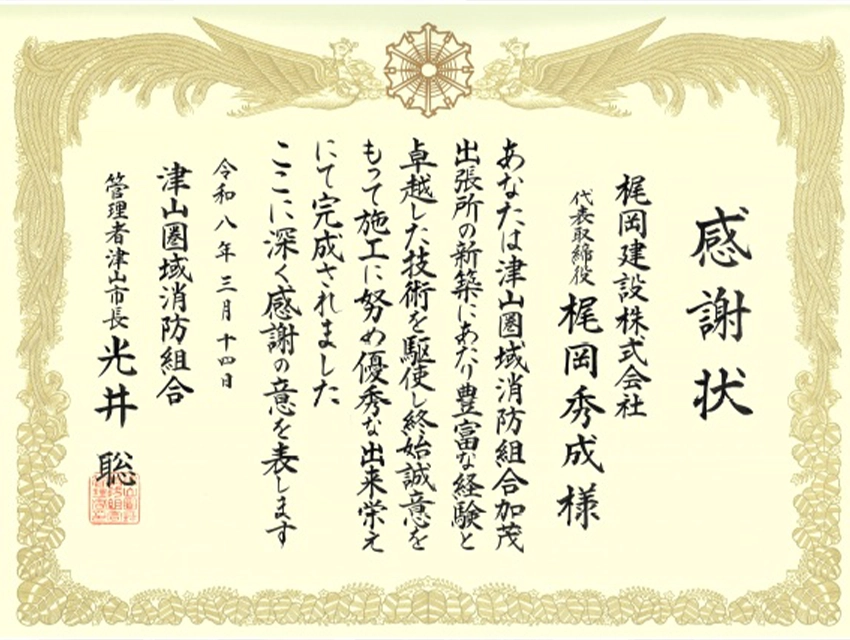 感謝状
梶岡建設株式会社
代表取締役 梶岡秀成 様
あなたは津山圏域消防組合加茂
出張所の新築にあたり豊富な経験と
卓越した技術を駆使し終始誠意を
もって施工に努め優秀な出来栄え
にて完成されました
ここに深く感謝の意を表します
令和八年三月十四日
津山圏域消防組合
管理者津山市長 光井 聡